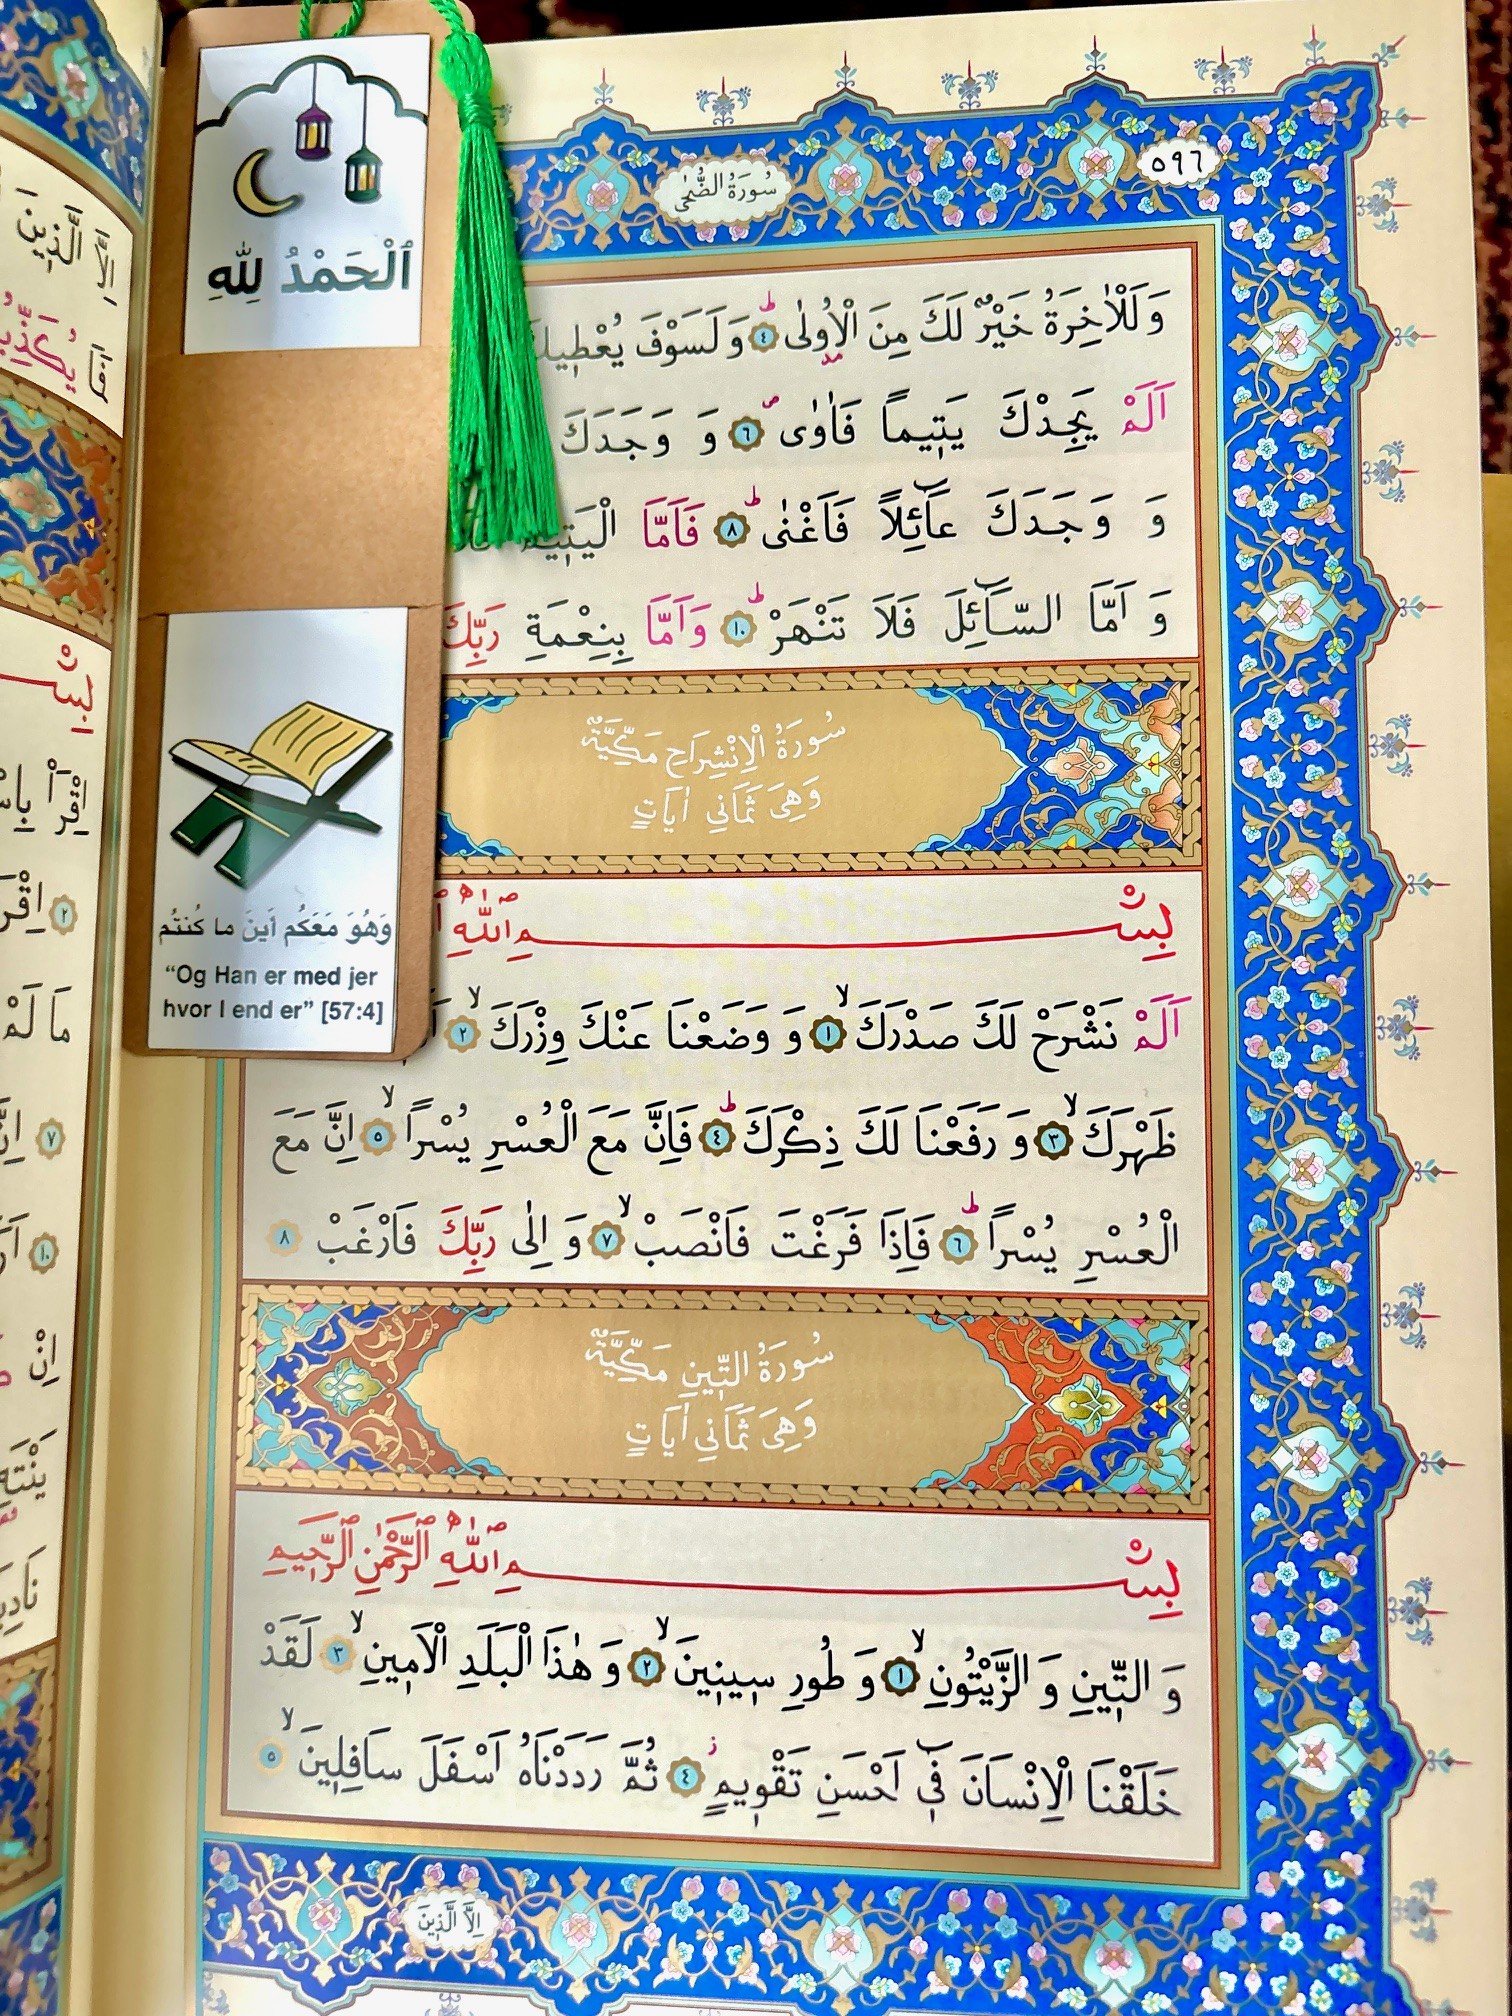 سُورَةُ الضُّحٰى
٥٩٦
وَلَلْاٰخِرَةُ خَيْرٌ لَكَ مِنَ الْاُولٰىۜ ٤ وَلَسَوْفَ يُعْطِيكَ
اَلَمْ يَجِدْكَ يَتِيماً فَاٰوٰىۖ ٦ وَ وَجَدَكَ
وَ وَجَدَكَ عَٓائِلاً فَاَغْنٰىۜ ٨ فَاَمَّا الْيَتِيمَ
وَ اَمَّا السَّٓائِلَ فَلَا تَنْهَرْۜ ١٠ وَاَمَّا بِنِعْمَةِ رَبِّكَ
سُورَةُ الْاِنْشِرَاحِ مَكِّيَّةٌ
وَهِيَ ثَمَانِي اٰيَاتٍ
بِسْمِ اللّٰهِ
اَلَمْ نَشْرَحْ لَكَ صَدْرَكَۙ ١ وَ وَضَعْنَا عَنْكَ وِزْرَكَۙ ٢
ظَهْرَكَۙ ٣ وَ رَفَعْنَا لَكَ ذِكْرَكَۜ ٤ فَاِنَّ مَعَ الْعُسْرِ يُسْراًۙ ٥ اِنَّ مَعَ
الْعُسْرِ يُسْراًۜ ٦ فَاِذَا فَرَغْتَ فَانْصَبْۙ ٧ وَ اِلٰى رَبِّكَ فَارْغَبْ ٨
سُورَةُ التِّينِ مَكِّيَّةٌ
وَهِيَ ثَمَانِي اٰيَاتٍ
بِسْمِ اللّٰهِ الرَّحْمٰنِ الرَّحِيمِ
وَ التِّينِ وَ الزَّيْتُونِۙ ١ وَ طُورِ سِينِينَۙ ٢ وَ هٰذَا الْبَلَدِ الْاَمِينِۙ ٣ لَقَدْ
خَلَقْنَا الْاِنْسَانَ فِٓي اَحْسَنِ تَقْوِيمٍۘ ٤ ثُمَّ رَدَدْنَاهُ اَسْفَلَ سَافِلِينَۙ ٥
اِلَّا الَّذِينَ
ٱلْحَمْدُ لِلّٰهِ
وَهُوَ مَعَكُم أَينَ ما كُنتُم
“Og Han er med jer
hvor I end er” [57:4]
اِلَّا الَّذِينَ
فَمَا
اِقْرَأْ
٢ اِقْرَأْ
مَا لَمْ
٧
١٠
اِنْ
يَنْتَهِ